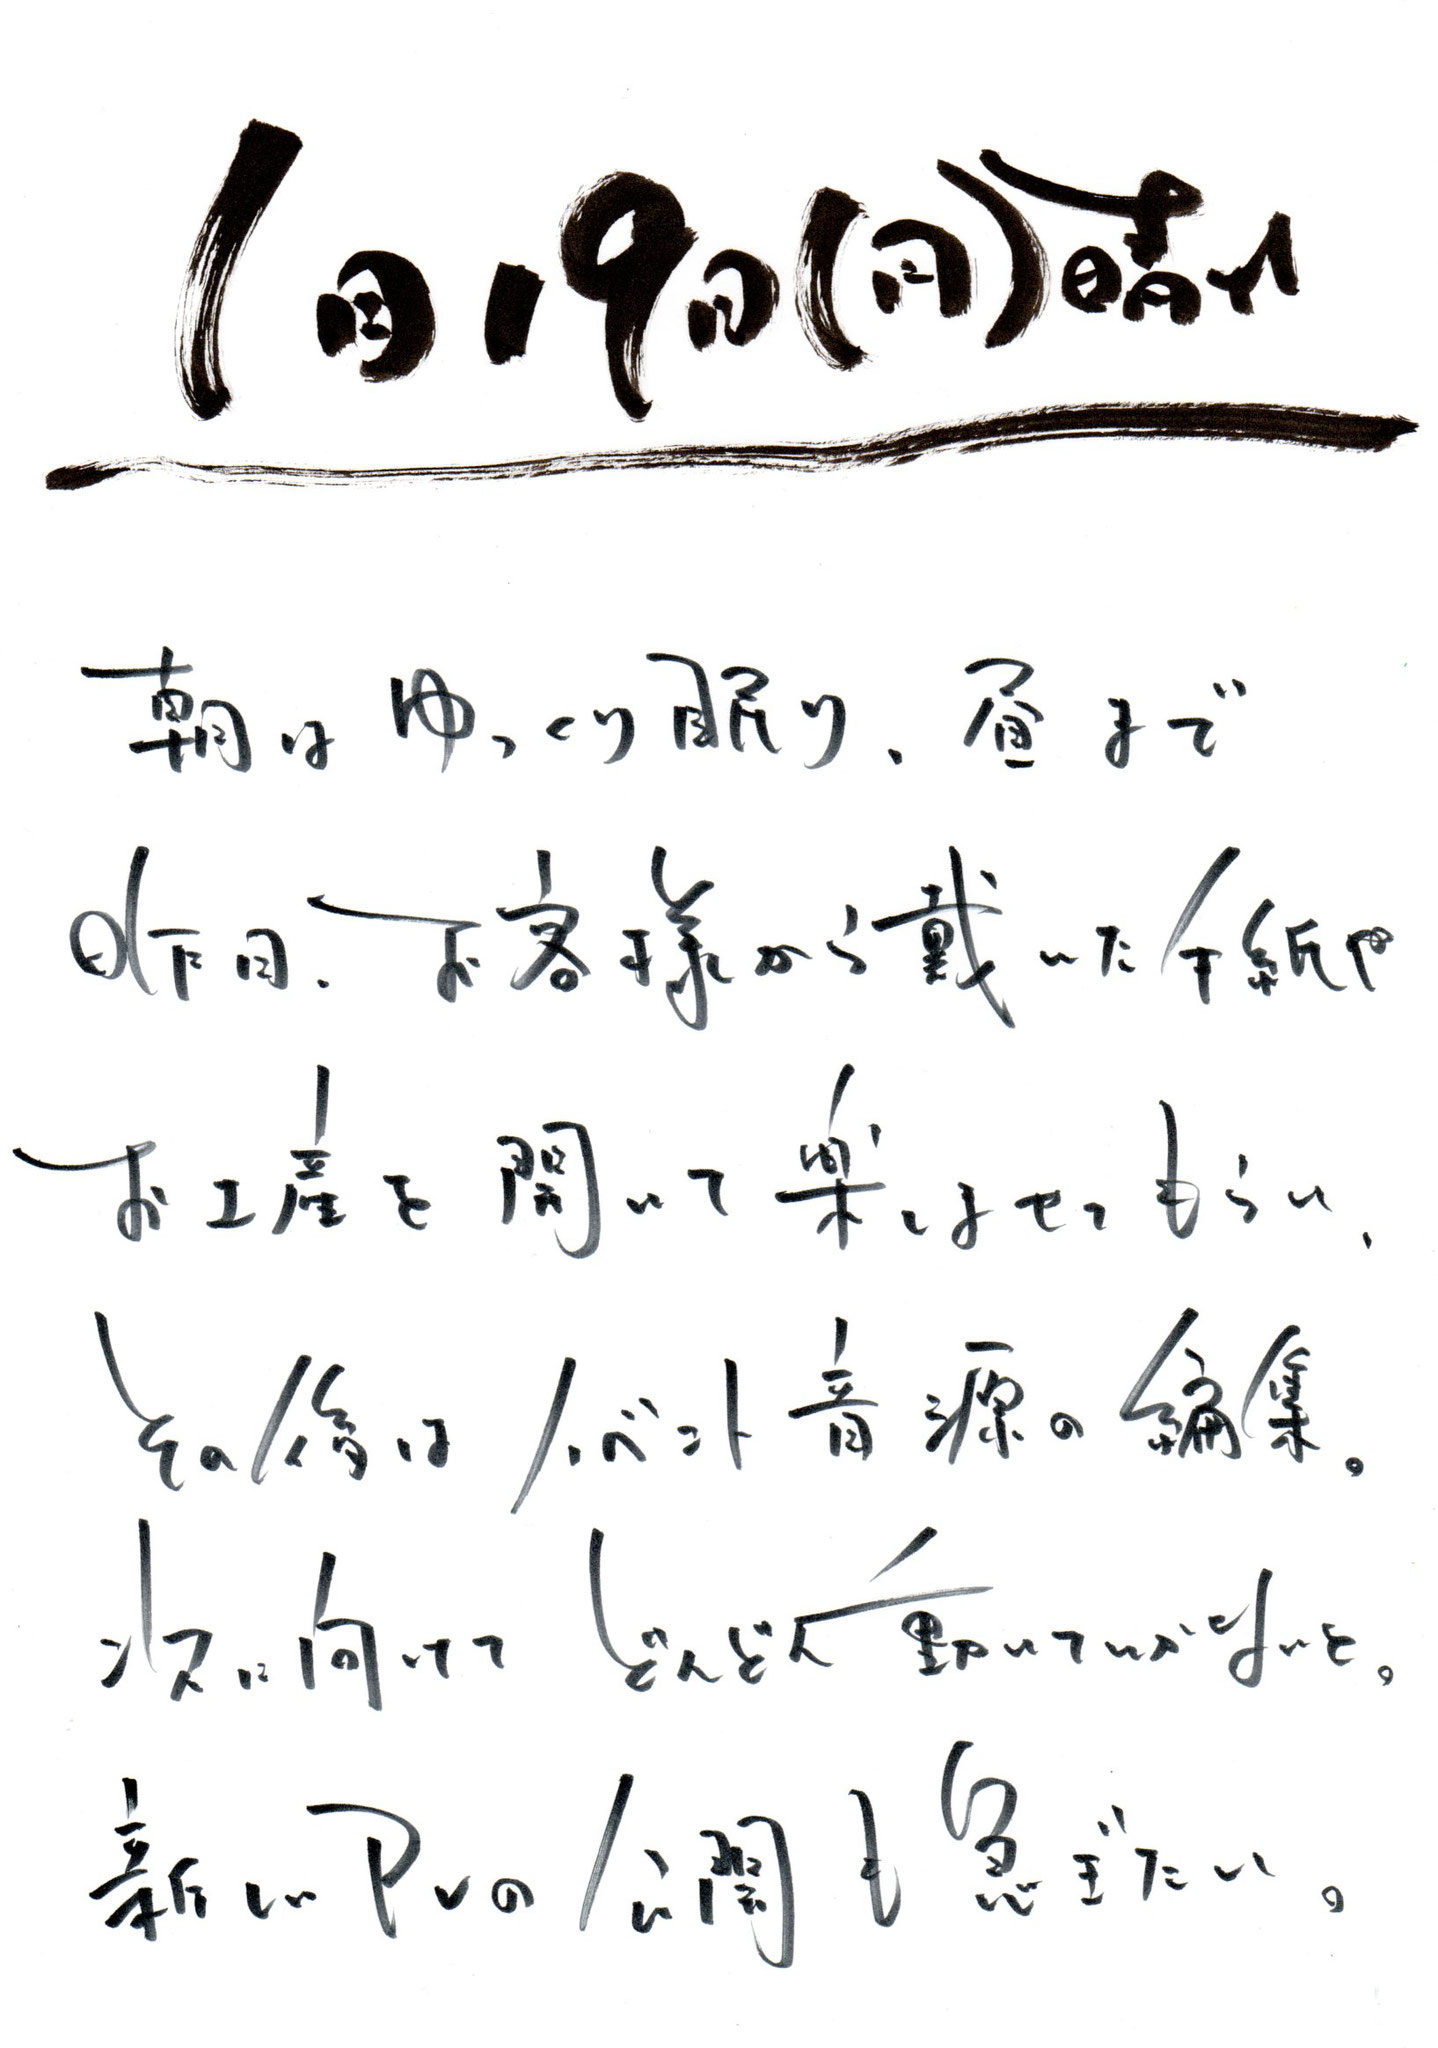 1月19日(月)晴れ
朝はゆっくり眠り、昼まで
昨日、お客様から戴いた手紙や
お土産を開いて楽しませてもらい、
その後はイベント音源の編集。
次に向けてどんどん動いていかないと。
新しいPVの公開も急ぎたい。